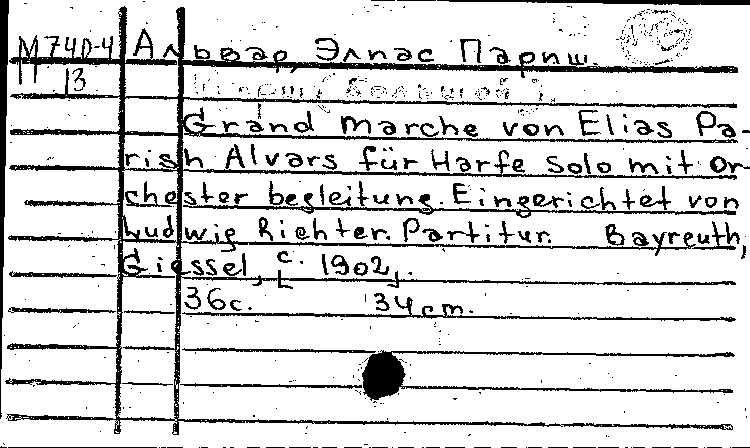 М 740-4 Альвар, Элиас Париш.
13 Марш (Большой).
Grand Marche von Elias Pa-
rish Alvars für Harfe Solo mit Or-
chester begleitung. Eingerichtet von
Ludwig Richter. Partitur. Bayreuth,
Giessel, [c. 1902].
36c. 34cm.